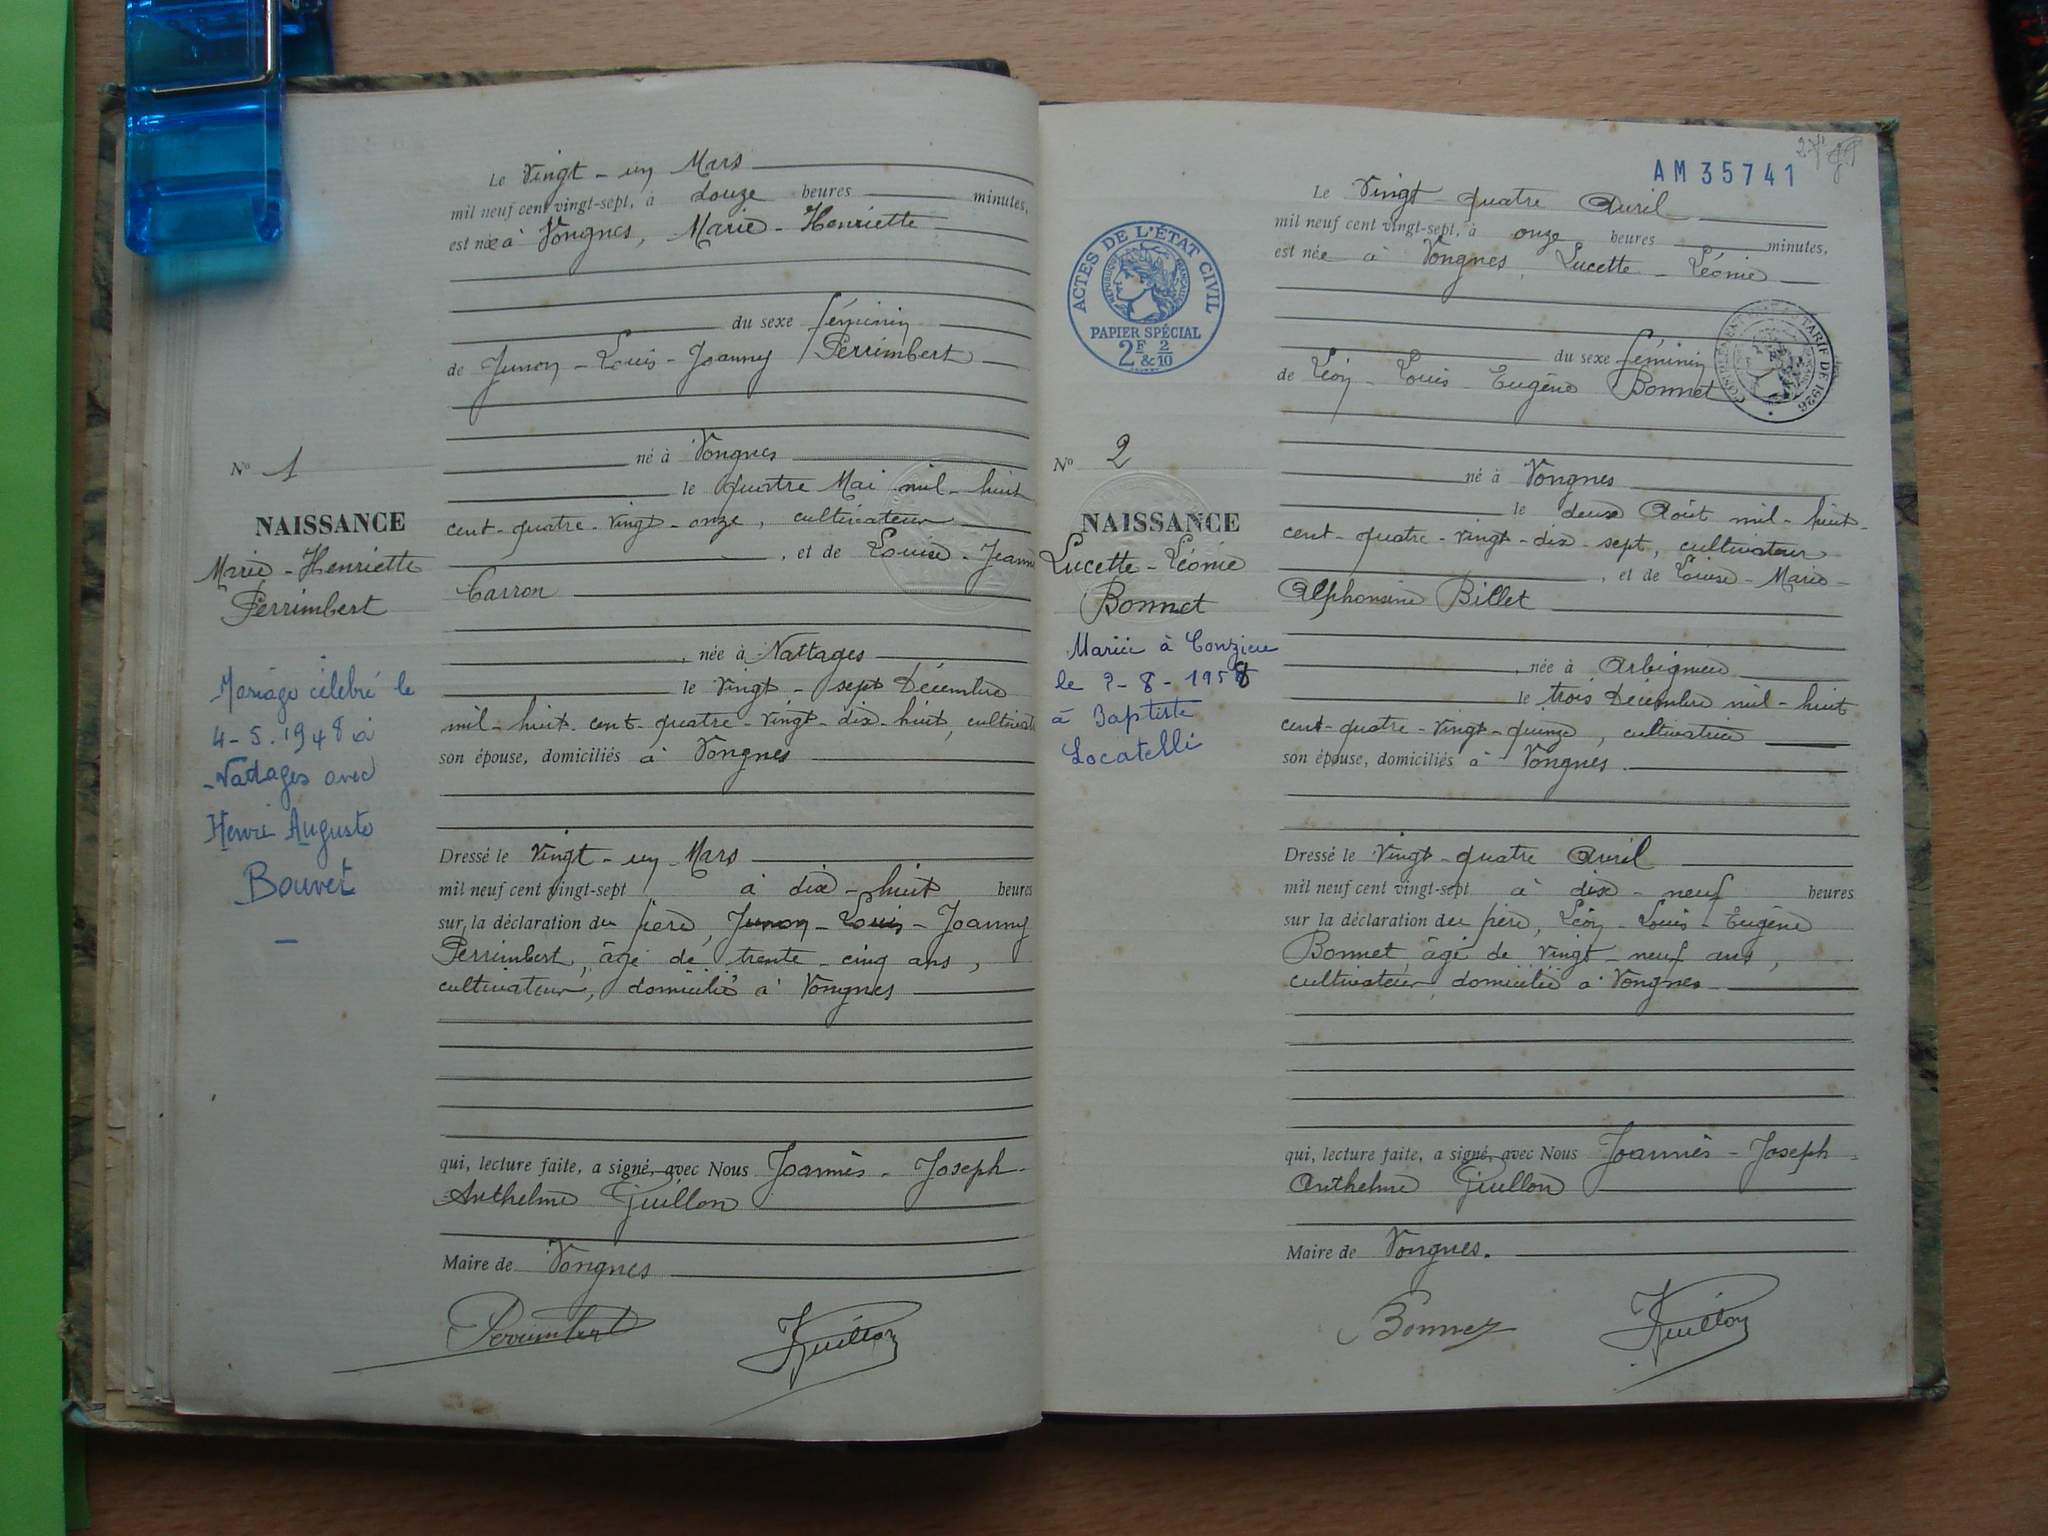 Le Vingt-un Mars
mil neuf cent vingt-sept, à douze heures minutes,
est née à Vongnes, Marie-Henriette
du sexe féminin
de Junon-Louis-Joanny Perrimbert
né à Vongnes
le quatre Mai mil-huit
cent-quatre-vingt-onze, cultivateur
, et de Louise-Jeanne
Carron
, née à Nattages
le vingt-sept Décembre
mil-huit-cent-quatre-vingt-dix-huit, cultivat
son épouse, domiciliés à Vongnes
Dressé le vingt-un Mars
mil neuf cent vingt-sept à dix-huit heures
sur la déclaration du père, Junon-Louis-Joanny
Perrimbert, âgé de trente-cinq ans,
cultivateur, domicilié à Vongnes
qui, lecture faite, a signé avec Nous Joannès-Joseph-
Anthelme Guillon
Maire de Vongnes
Perrimbert Guillon
N° 1
NAISSANCE
Marie-Henriette
Perrimbert
Mariage célébré le
4-5.1948 à
Nattages avec
Henri Auguste
Bouvet
AM 35741
Le Vingt-quatre Avril
mil neuf cent vingt-sept, à onze heures minutes,
est née à Vongnes, Lucette-Léonie
du sexe féminin
de Léon-Louis-Eugène Bonnet
né à Vongnes
le deux Août mil-huit-
cent-quatre-vingt-dix-sept, cultivateur
, et de Louise-Marie-
Alphonsine Billet
, née à Arbignieu
le trois Décembre mil-huit
cent-quatre-vingt-quinze, cultivatrice
son épouse, domiciliés à Vongnes
Dressé le vingt-quatre Avril
mil neuf cent vingt-sept à dix-neuf heures
sur la déclaration du père, Léon-Louis-Eugène
Bonnet âgé de vingt-neuf ans,
cultivateur, domicilié à Vongnes
qui, lecture faite, a signé avec Nous Joannès-Joseph-
Anthelme Guillon
Maire de Vongnes.
Bonnet Guillon
ACTES DE L'ÉTAT CIVIL
RÉPUBLIQUE FRANÇAISE
PAPIER SPÉCIAL
2F & 2/10
TARIF DE 1926
N° 2
NAISSANCE
Lucette-Léonie
Bonnet
Mariée à Conzieu
le 2-8-1958
à Baptiste
Locatelli